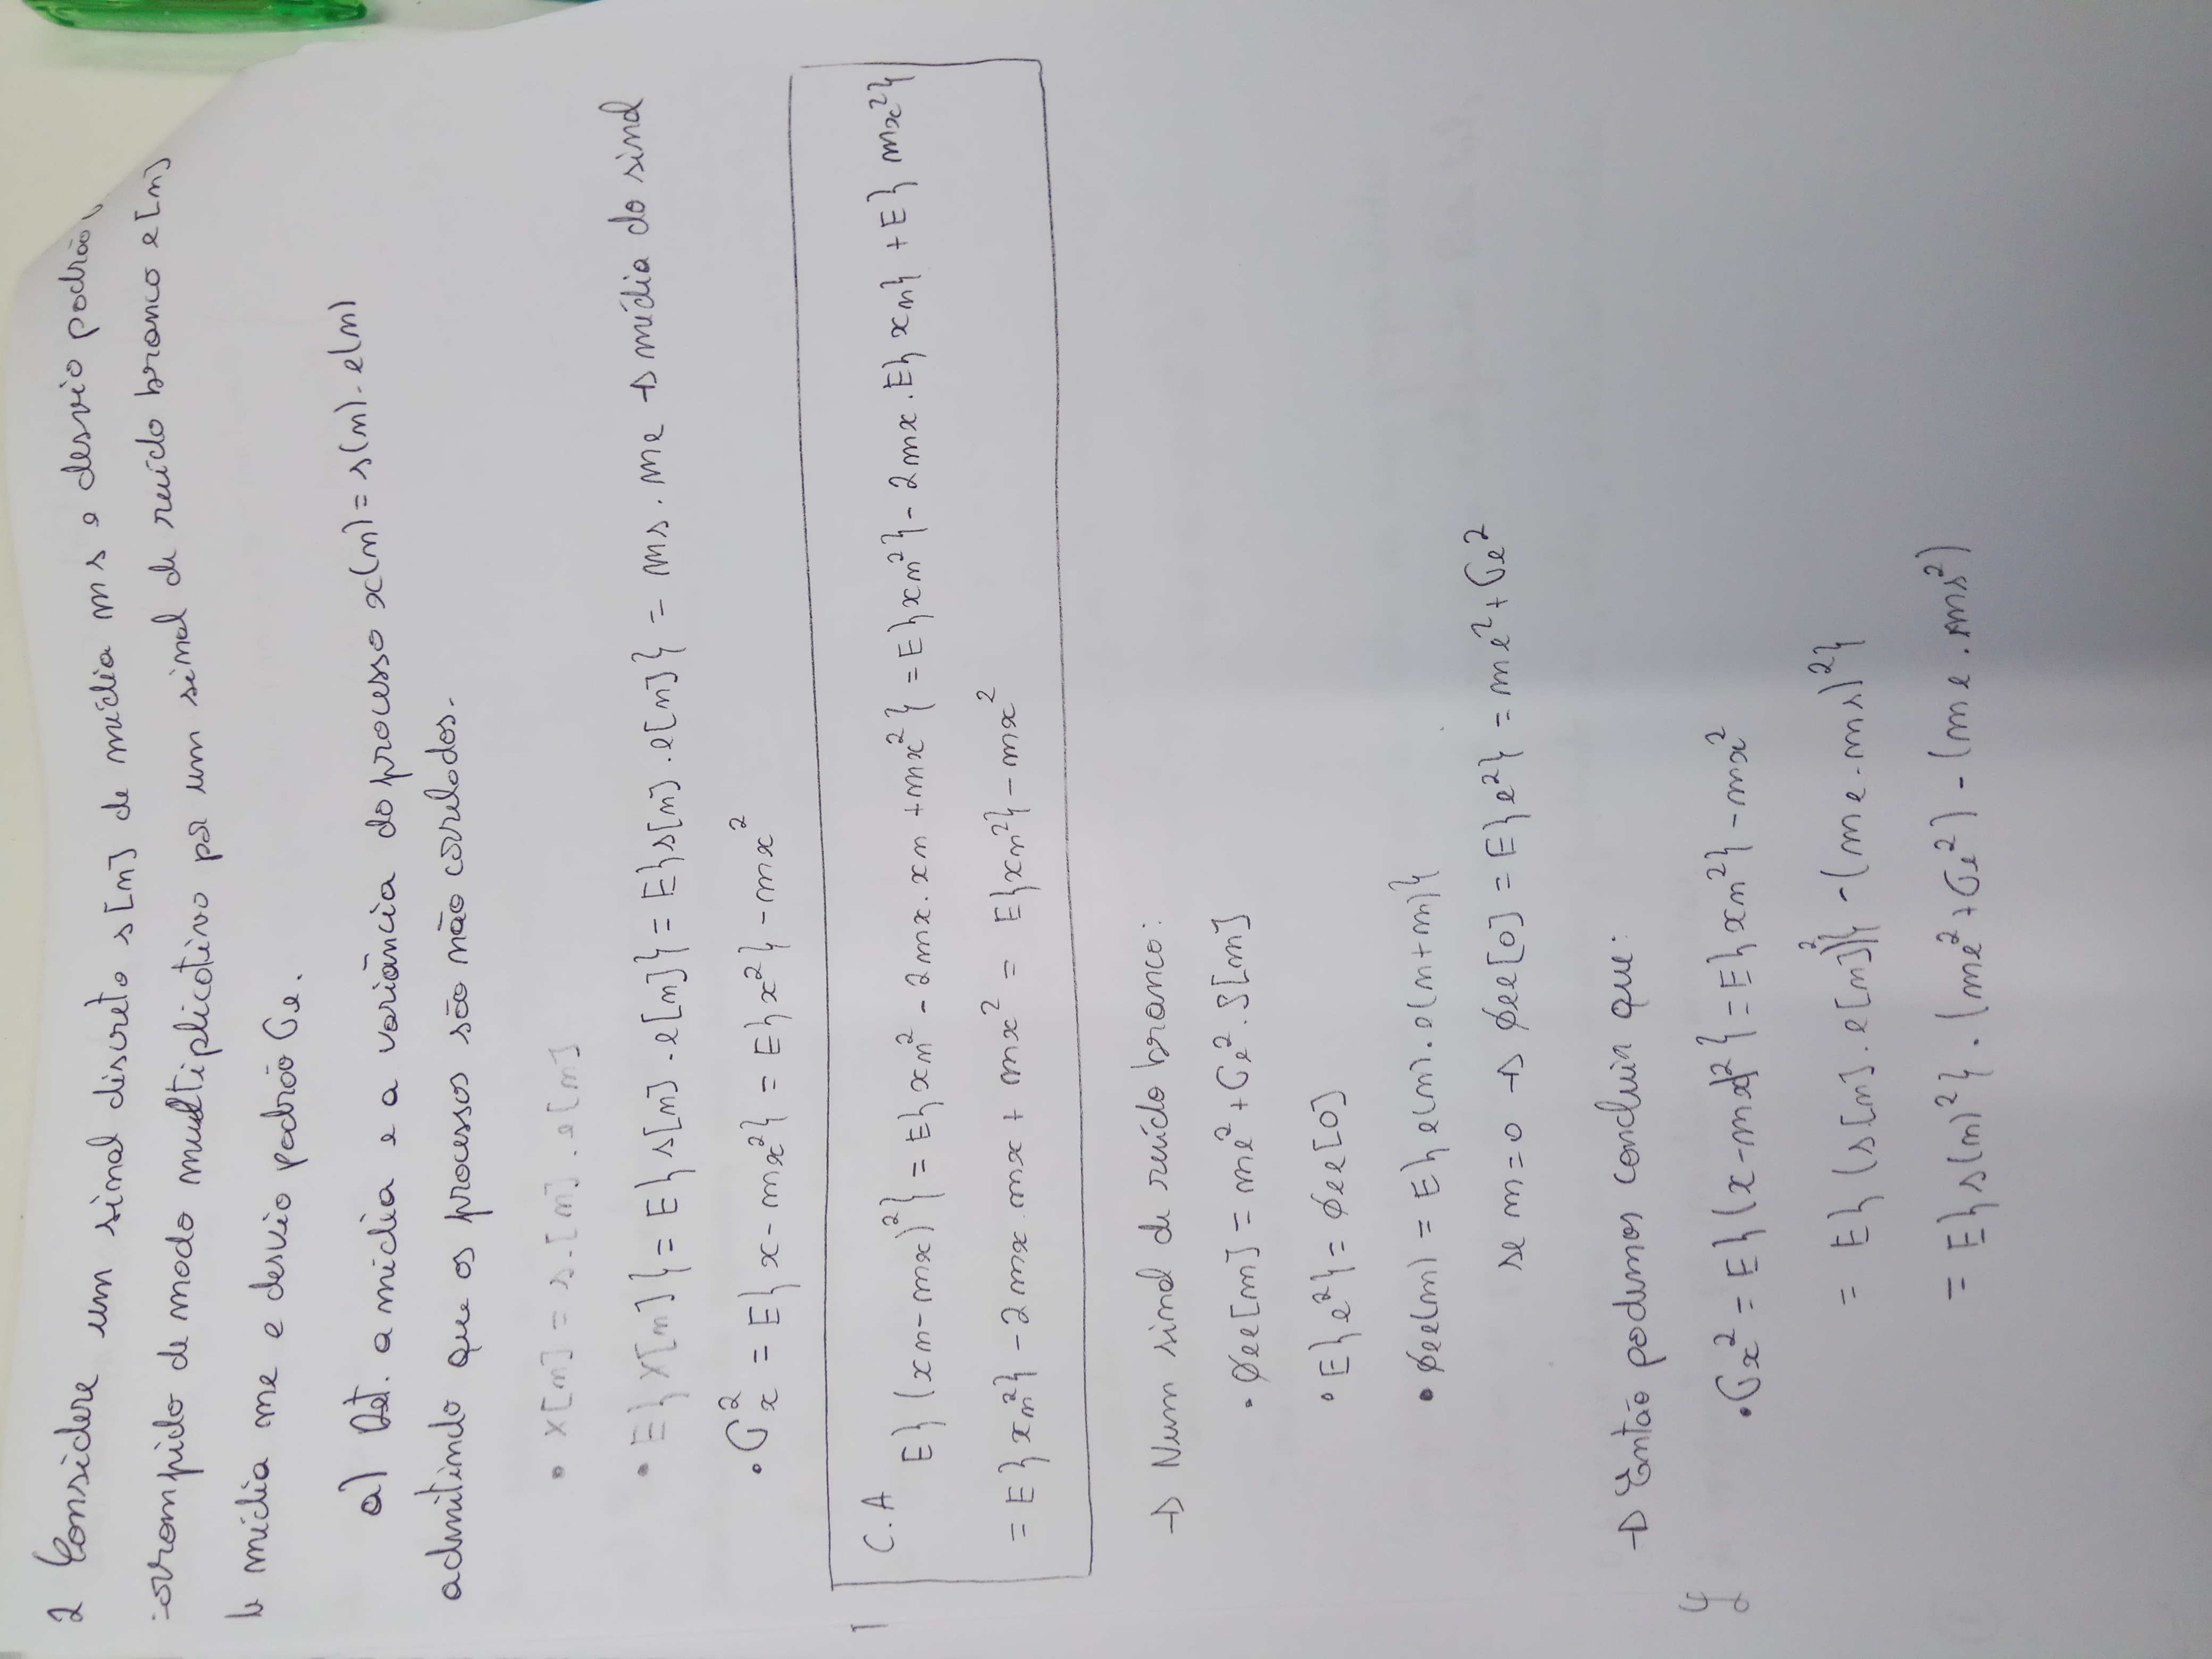 2 Considere um sinal discreto s[n] de média ms e desvio padrão
corrompido de modo multiplicativo por um sinal de ruído branco e[n]
de média me e desvio padrão σe.
a) Det. a média e a variância do processo x(n) = s(n). e(n)
admitindo que os processos são não correlados.
• X[n] = s.[n] . e[n]
• E{X[n]} = E{s[n] . e[n]} = E{s[n] . e[n]} = ms . me → média do sinal
• σx² = E{x - mx²} = E{x²} - mx²
C.A
E{(xn - mx)²} = E{xn² - 2mx. xn + mx²} = E{xn²} - 2mx . E{xn} + E{mx²}
= E{xn²} - 2mx mx + mx² = E{xn²} - mx²
→ Num sinal de ruído branco:
• øee[m] = me² + σe² . δ[m]
• E{e²} = øee[0]
• øee(m) = E{e(n). e(n+m)}
se m=0 → øee[0] = E{e²} = me² + σe²
→ Então podemos concluir que:
• σx² = E{(x-mx)²} = E{xn²} - mx²
= E{(s[n] . e[n])²} - (me.ms)²}
= E{s(n)²} . (me² + σe²) - (me . ms²)